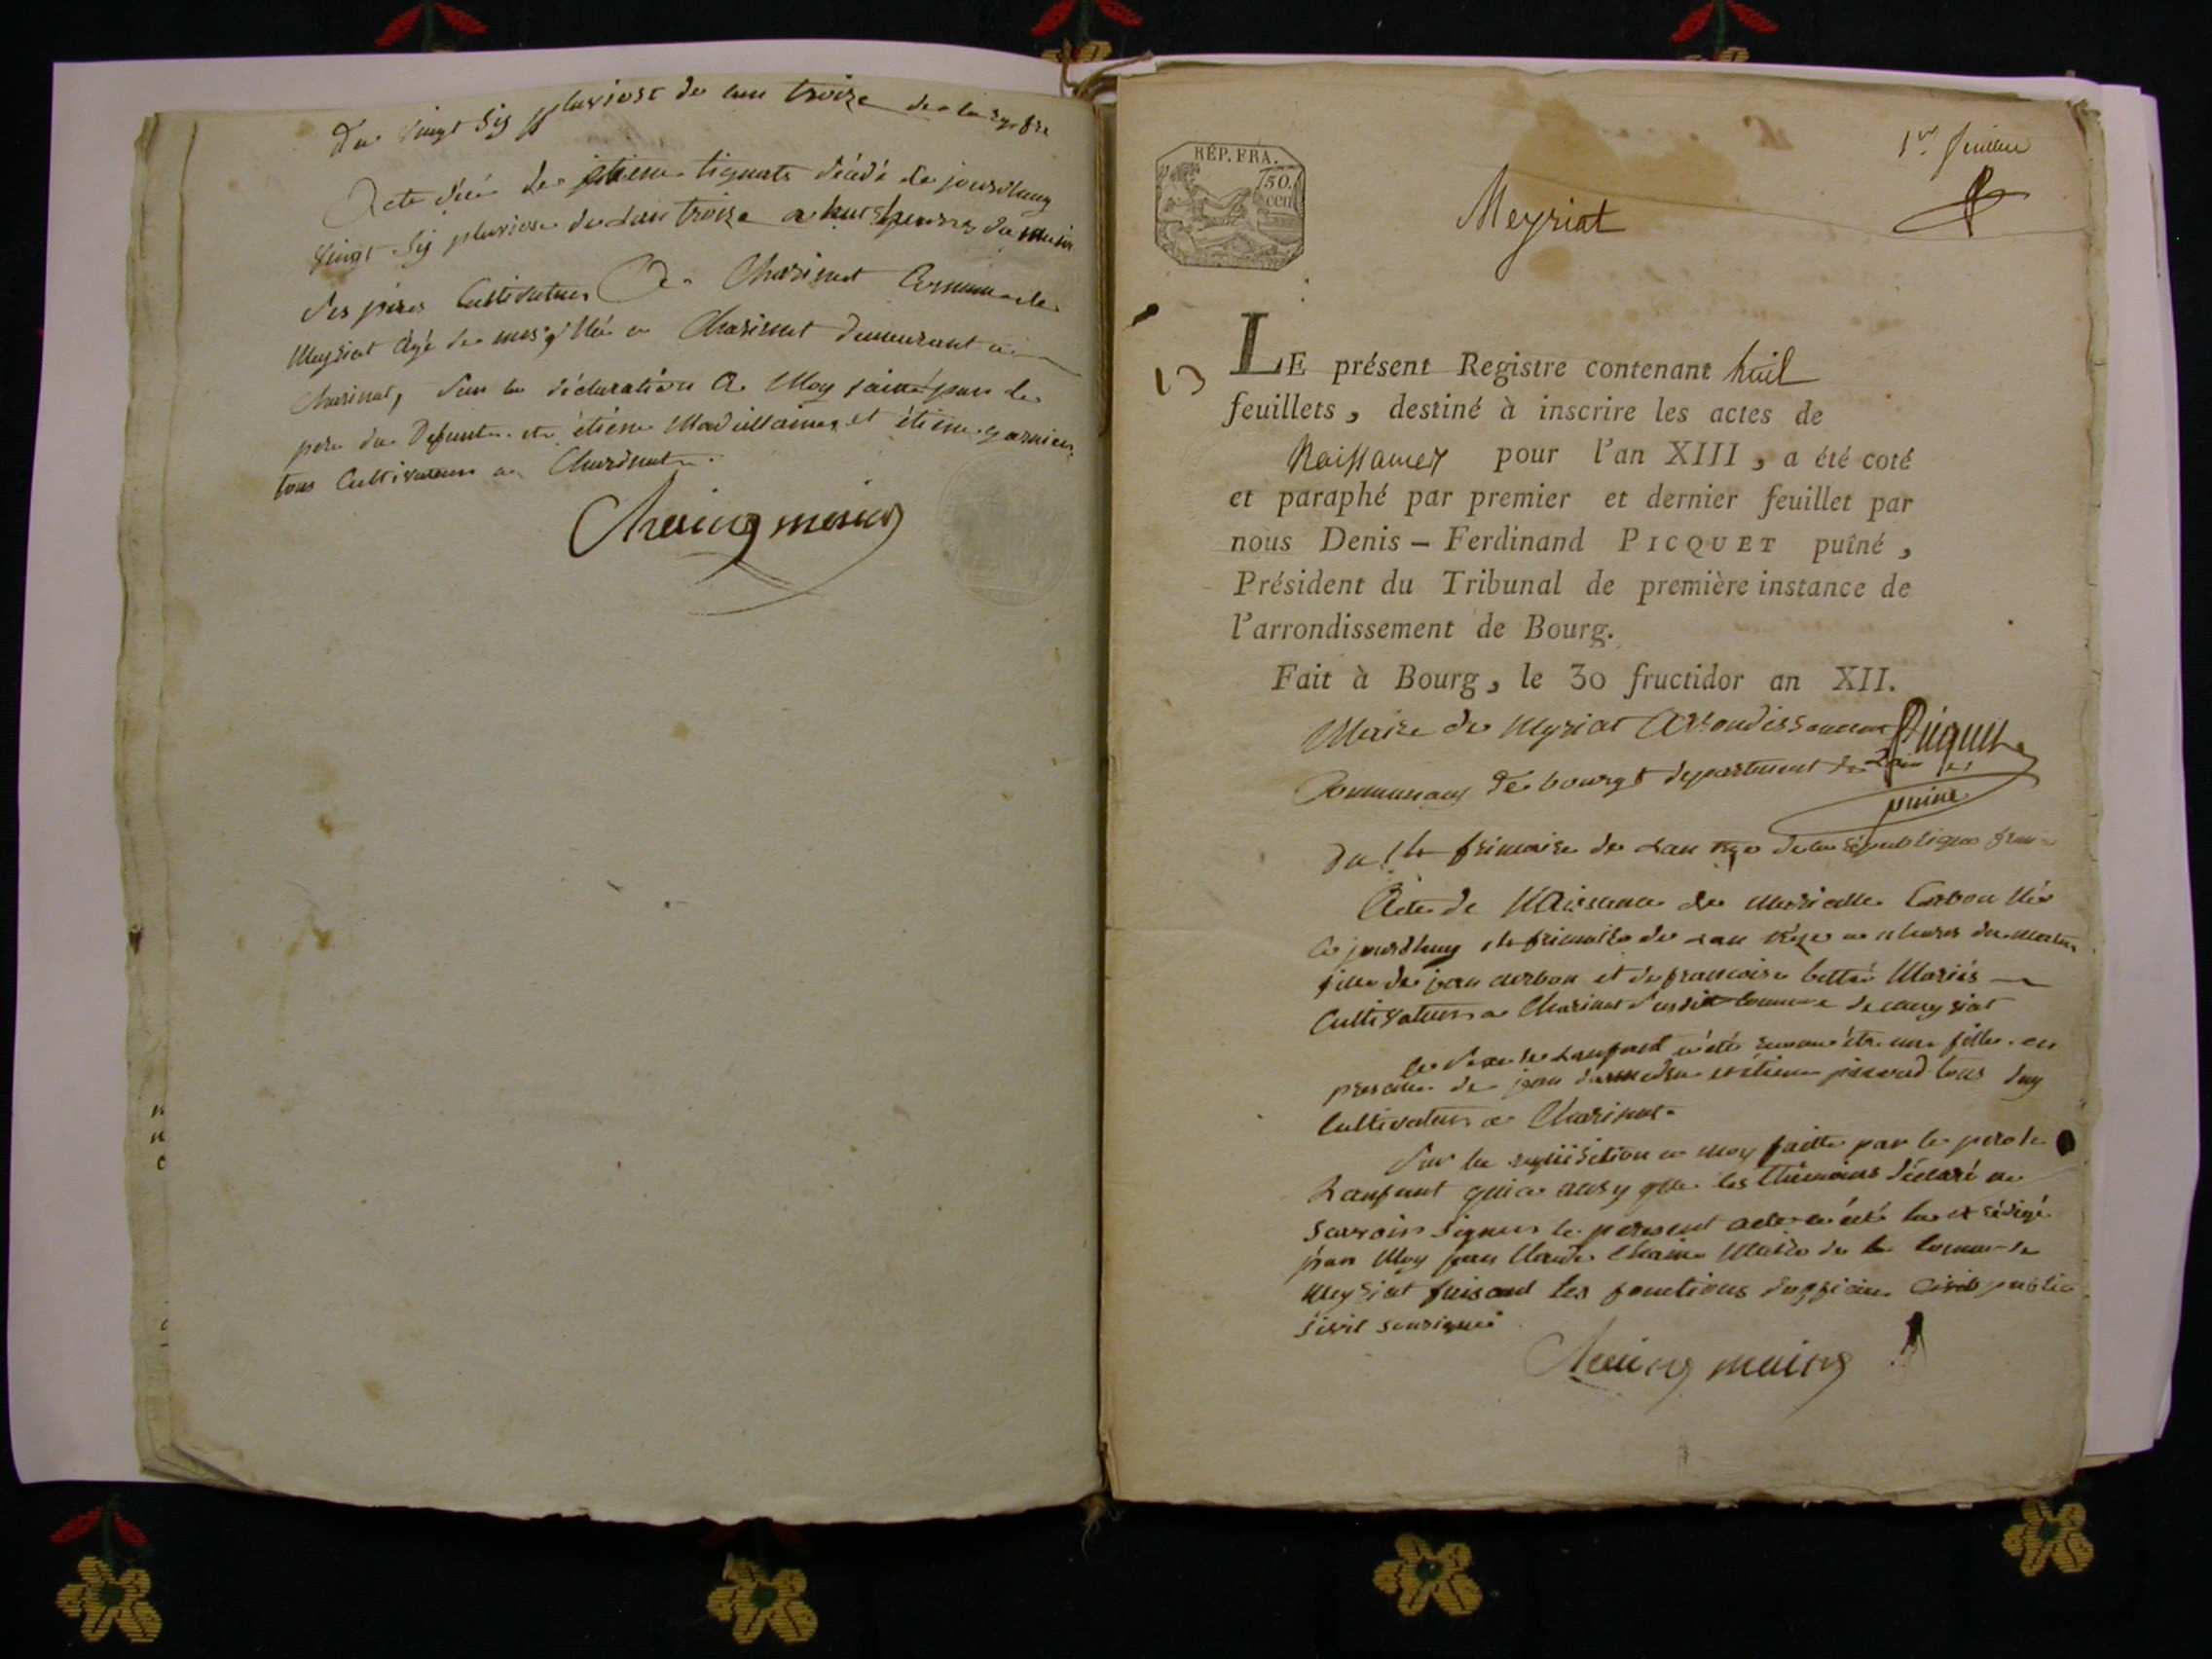 Du vingt six pluviose de lan troize de la rep fre
Acte décé de étiene tignats décédé de jourdhuy
vingt six pluviose de lan troize a huit heures du matin
des pères Cultivateur De Charinat Commune de
Meyriat agé de mois Né a Charinat demeurant a
Charinat, sur la déclaration A Moy faitte par le
pere du Defunt et étiéne et étiéne garnier
tous Cultivateurs a Charinat.
Chaine maire
RÉP. FRA.
50.
cen
1er feuillet
Meyriat
13
LE présent Registre contenant huit
feuillets, destiné à inscrire les actes de
Naissances pour l'an XIII, a été coté
et paraphé par premier et dernier feuillet par
nous Denis – Ferdinand PICQUET puîné,
Président du Tribunal de première instance de
l'arrondissement de Bourg.
Fait à Bourg, le 30 fructidor an XII.
Maire de Meyriat Arrondissement Picquet
Communal de bourg departement de Lain
puiné
du frimaire de lan de la république fran
Acte de Naissance de Carbon Née
Ce jourdhuy frimaire de lan a heures du matin
fille de jean carbon et de francoise Mariés
Cultivateurs a Charinat susdit Commune de meyriat
le sexe de Lanfant a été reconnu être une fille. en
presance de jean et etiene tous deux
Cultivateurs a Charinat.
Sur la requisition a moy faitte par le pere de
Lanfant qui a ausy que les Thémoins déclaré ne
Savoir Signer le present acte a été lu et rédigé
par Moy jean Claude Chaine Maire de la Commune de
Meyriat faisant les fonctions dofficier Civil public
sivil sousigné
Chaine maire